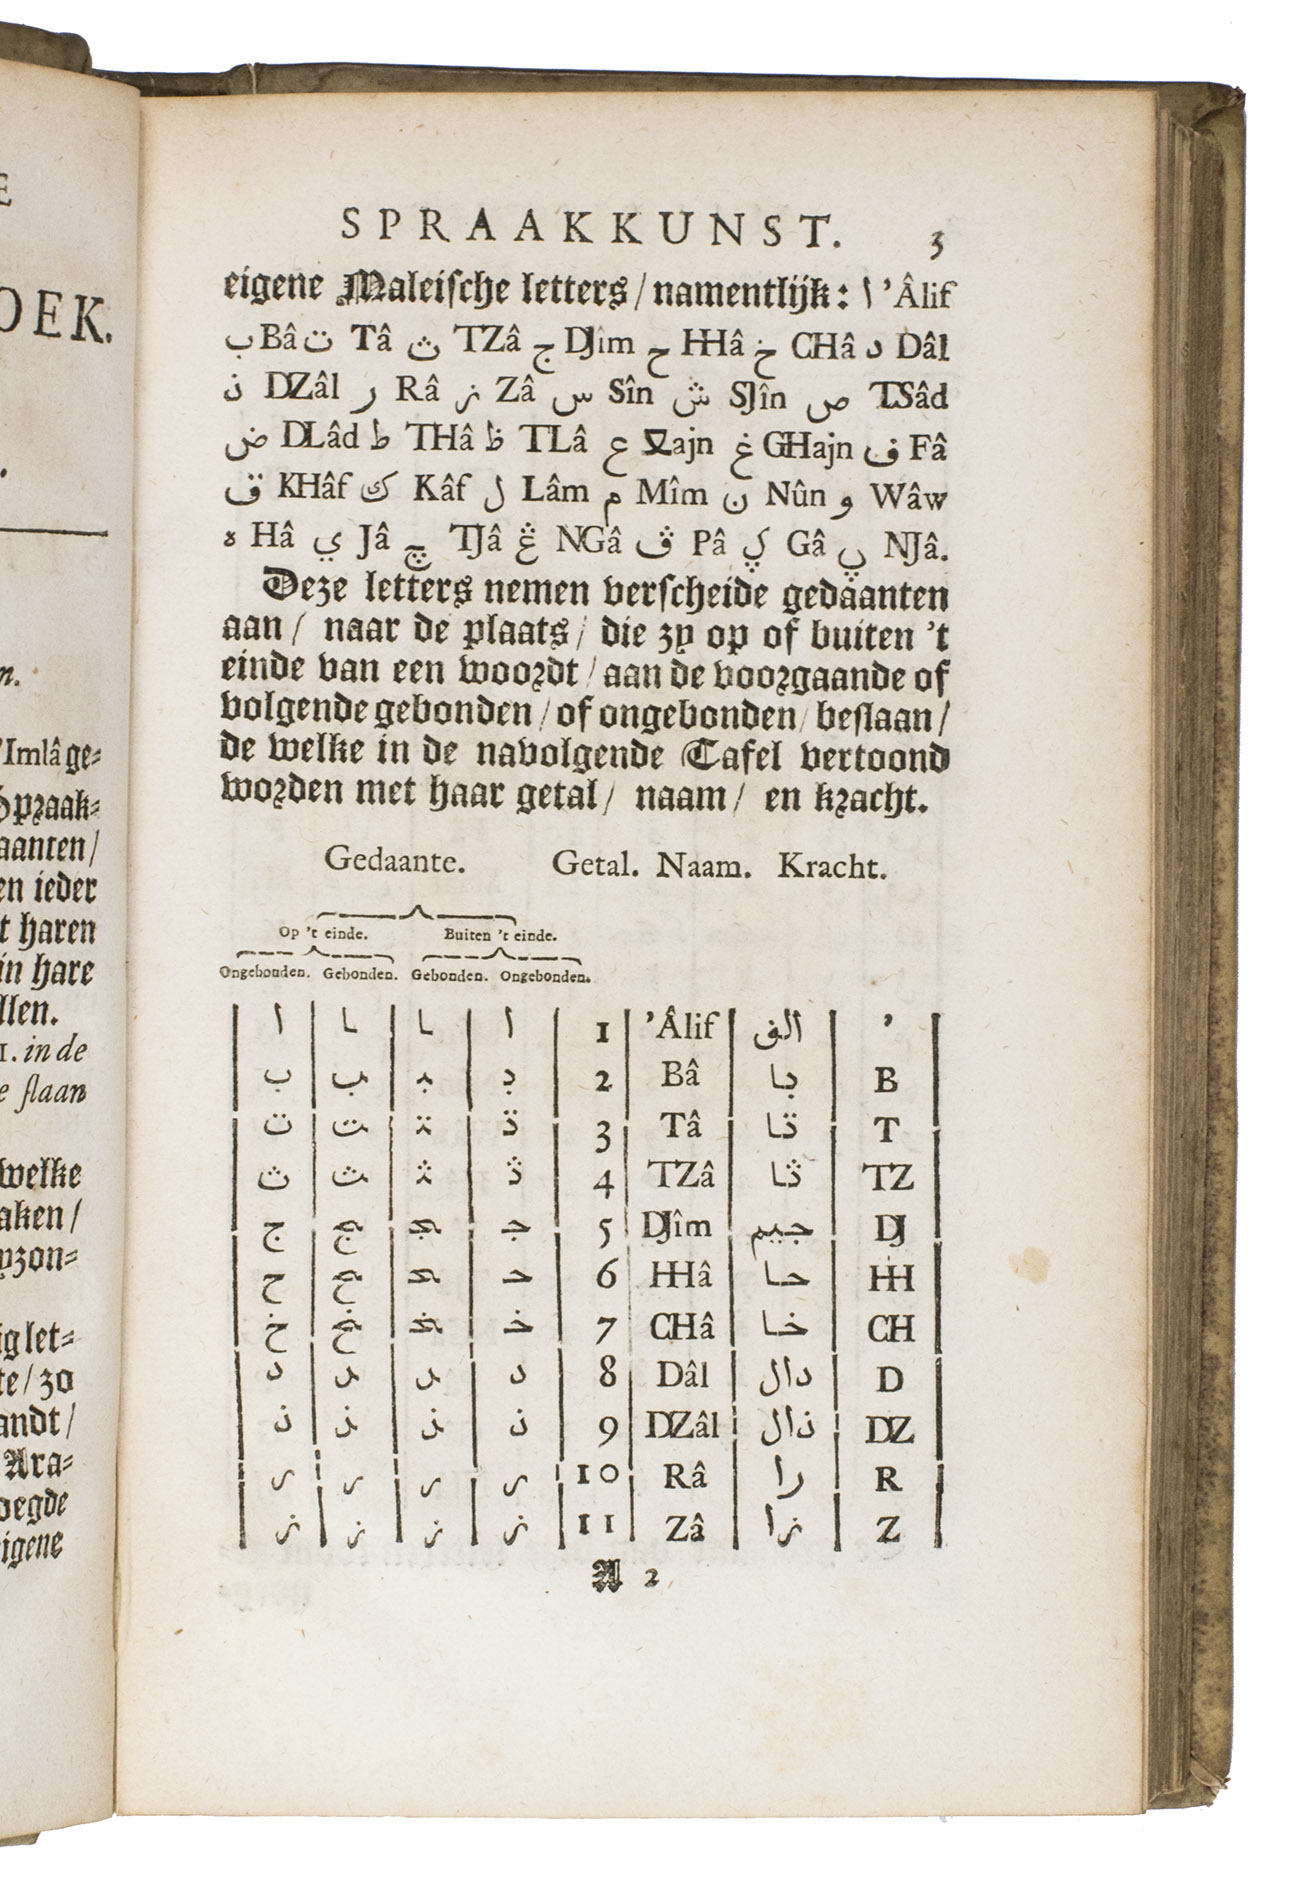 E
OEK.
.
n.
'Imlâ ge=
Spraak=
aanten/
en ieder
t haren
in hare
llen.
1. in de
e slaan
welke
aken/
yzon=
ig let=
te/ zo
andt/
Ara=
oegde
eigene
SPRAAKKUNST. 3
eigene Maleiſche letters/ namentlijk: ا 'Âlif
ب Bâ ت Tâ ث TZâ ج DJîm ح HHâ خ CHâ د Dâl
ذ DZâl ر Râ ز Zâ س Sîn ش SJîn ص TSâd
ض DLâd ط THâ ظ TLâ ع ajn غ GHajn ف Fâ
ق KHâf ك Kâf ل Lâm م Mîm ن Nûn و Wâw
ه Hâ ي Jâ چ TJâ ڠ NGâ ڤ Pâ ڮ Gâ ڽ NJâ.
Deze letters nemen verſcheide gedaanten
aan/ naar de plaats/ die zy op of buiten 't
einde van een woordt/ aan de voorgaande of
volgende gebonden/ of ongebonden/ beſlaan/
de welke in de navolgende Tafel vertoond
worden met haar getal/ naam/ en kracht.
Gedaante. Getal. Naam. Kracht.
Op 't einde. Buiten 't einde.
Ongebonden. Gebonden. Gebonden. Ongebonden.
ا ـا ـا ا 1 'Âlif الف '
ب ـب ـبـ بـ 2 Bâ با B
ت ـت ـتـ تـ 3 Tâ تا T
ث ـث ـثـ ثـ 4 TZâ ثا TZ
ج ـج ـجـ جـ 5 DJîm جيم DJ
ح ـح ـحـ حـ 6 HHâ حا HH
خ ـخ ـخـ خـ 7 CHâ خا CH
د ـد ـد د 8 Dâl دال D
ذ ـذ ـذ ذ 9 DZâl ذال DZ
ر ـر ـر ر 10 Râ را R
ز ـز ـز ز 11 Zâ زا Z
A 2